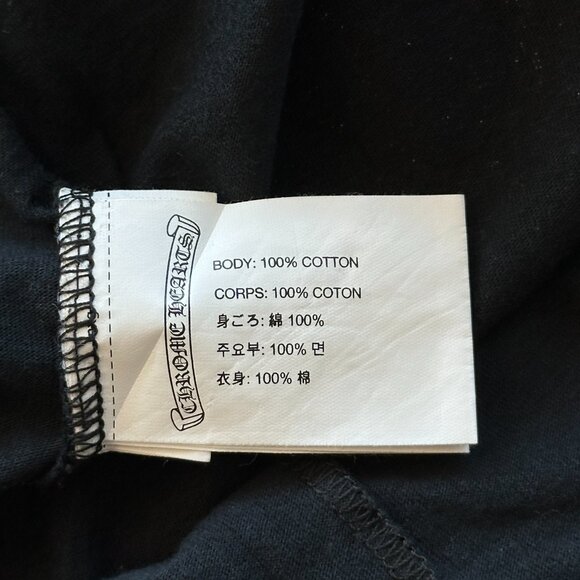 CHROME HEARTS
BODY: 100% COTTON
CORPS: 100% COTON
身ごろ: 綿 100%
주요부: 100% 면
衣身: 100% 棉